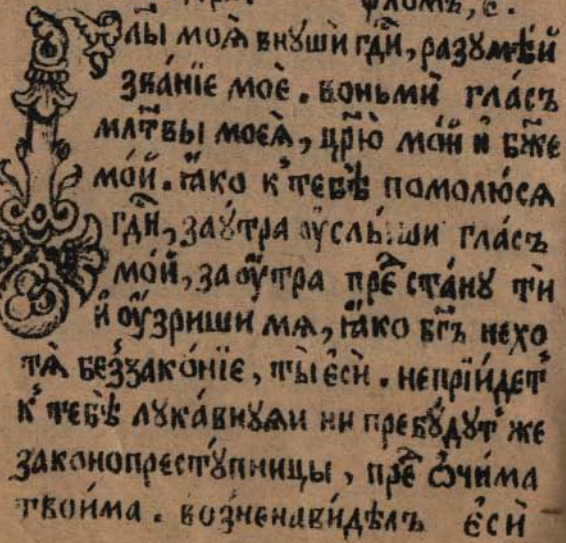 ѱлⷪмъ, є҃.
Глы̀ моѧ̀ внꙋшѝ гдⷭ҇и, разꙋмѣ́й
зва́нїе моѐ . воньмѝ гла́съ
млт҃вы моеѧ̀ , цр҃ю̀ мо́й и҆ бж҃е
мо́й . ꙗ҆́ко к̾ тебѣ̀ помолю́сѧ
гдⷭ҇и , заꙋ́тра ᲂу҆слы́ши гла́съ
мо́й , заᲂу́тра преⷣ ста́нꙋ тѝ
и҆ ᲂу҆́зриши мѧ , ꙗ҆́ко бг҃ъ нехо
тѧ̀ без̾зако́нїе , ты̀ є҆сѝ . непрїи́детъ
к̾ тебѣ̀ лꙋка́внꙋѧи ни пребꙋ́дꙋт̾ же
законопрестꙋ́пницы , преⷣ ѻ҆чи́ма
твои́ма . воз̾ненави́дѣлъ є҆сѝ